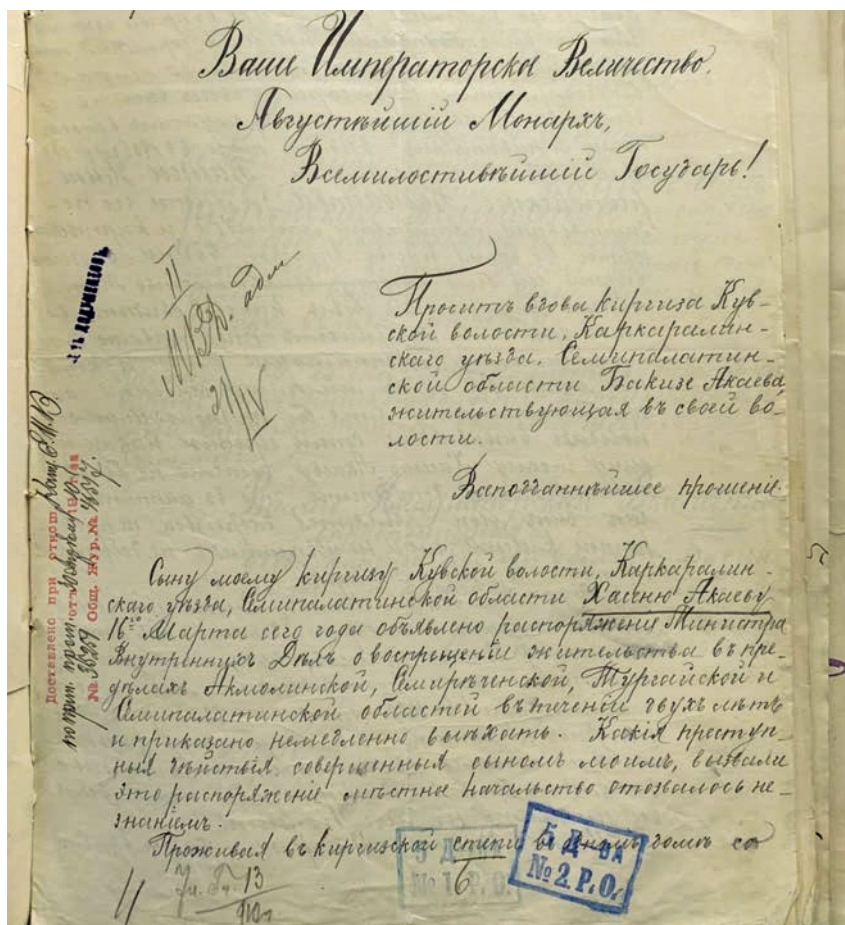 Ваше Императорское Величество.
Августѣйшій Монархъ,
Всемилостивѣйшій Государь!
II
МВД. адм
21/IV
Проситъ вдова киргиза Кув-
ской волости, Каркаралин-
скаго уѣзда, Семипалатин-
ской области Бакизе Акаева,
жительствующая въ своей во-
лости.
Вѣподданнѣйшее прошеніе.
Сыну моему киргизу Кувской волости, Каркаралин-
скаго уѣзда, Семипалатинской области Хасеню Акаеву
16го Марта сего года объявлено распоряженіе Министра
Внутреннихъ Дѣлъ о воспрещеніи жительства въ пре-
дѣлахъ Акмолинской, Семирѣченской, Тургайской и
Семипалатинской областей въ теченіи двухъ лѣтъ
и приказано немедленно выѣхать. Какія преступ-
ныя дѣйствія, совершенныя сыномъ моимъ, вызвали
это распоряженіе мѣстное начальство отозвалось не-
знаніемъ.
Проживая въ киргизской степи въ одномъ домѣ со
Доставлено при отнош. Канц. Е.И.В.
по прин. прош. отд.
№ 36259 Общ. Жур. №
5 Д-ВА
№ 1. Р. О.
6
5 Д-ВА
№ 2. Р. О.
11
13
910г
5